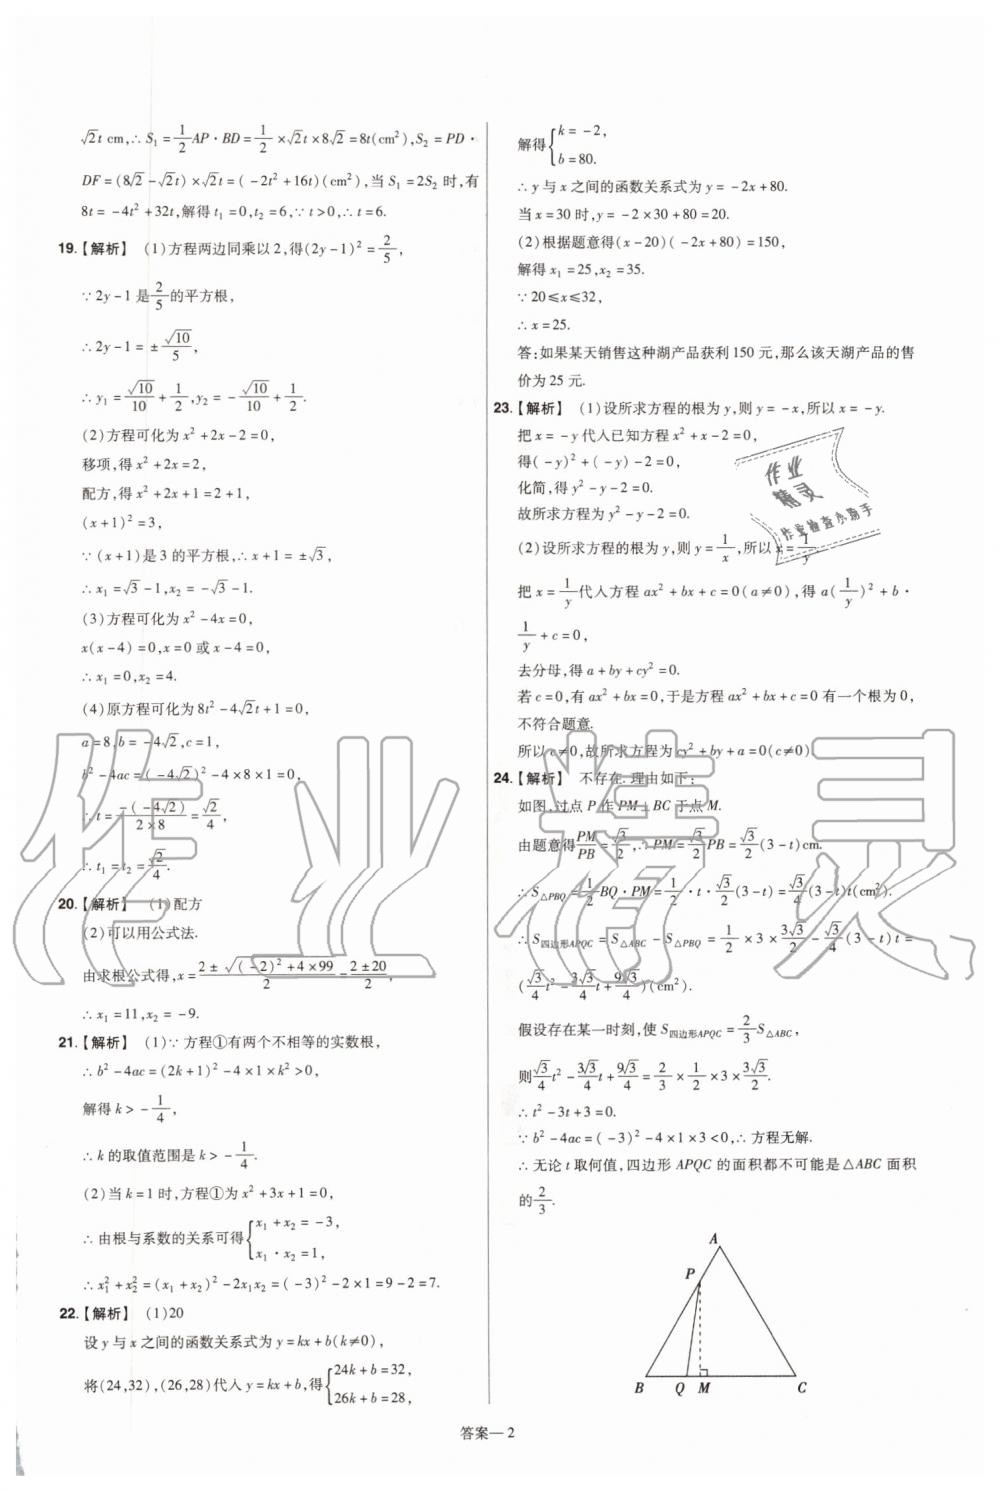 √2t cm,∴S₁=1/2AP·BD=1/2×√2t×8√2=8t(cm²),S₂=PD·
DF=(8√2-√2t)×√2t=(-2t²+16t)(cm²),当S₁=2S₂时,有
8t=-4t²+32t,解得t₁=0,t₂=6,∵t>0,∴t=6.
19.【解析】 (1)方程两边同乘以2,得(2y-1)²=2/5,
∵2y-1是2/5的平方根,
∴2y-1=±√10/5,
∴y₁=√10/10+1/2,y₂=-√10/10+1/2.
(2)方程可化为x²+2x-2=0,
移项,得x²+2x=2,
配方,得x²+2x+1=2+1,
(x+1)²=3,
∵(x+1)是3的平方根,∴x+1=±√3,
∴x₁=√3-1,x₂=-√3-1.
(3)方程可化为x²-4x=0,
x(x-4)=0,x=0或x-4=0,
∴x₁=0,x₂=4.
(4)原方程可化为8t²-4√2t+1=0,
a=8,b=-4√2,c=1,
b²-4ac=(-4√2)²-4×8×1=0,
∴t=-(-4√2)/(2×8)=√2/4,
∴t₁=t₂=√2/4.
20.【解析】 (1)配方
(2)可以用公式法.
由求根公式得,x=(2±√((-2)²+4×99))/2=(2±20)/2,
∴x₁=11,x₂=-9.
21.【解析】 (1)∵方程①有两个不相等的实数根,
∴b²-4ac=(2k+1)²-4×1×k²>0,
解得k>-1/4,
∴k的取值范围是k>-1/4.
(2)当k=1时,方程①为x²+3x+1=0,
∴由根与系数的关系可得{x₁+x₂=-3,
x₁·x₂=1,
∴x₁²+x₂²=(x₁+x₂)²-2x₁x₂=(-3)²-2×1=9-2=7.
22.【解析】 (1)20
设y与x之间的函数关系式为y=kx+b(k≠0),
将(24,32),(26,28)代入y=kx+b,得{24k+b=32,
26k+b=28,
解得{k=-2,
b=80.
∴y与x之间的函数关系式为y=-2x+80.
当x=30时,y=-2×30+80=20.
(2)根据题意得(x-20)(-2x+80)=150,
解得x₁=25,x₂=35.
∵20≤x≤32,
∴x=25.
答:如果某天销售这种湖产品获利150元,那么该天湖产品的售
价为25元.
23.【解析】 (1)设所求方程的根为y,则y=-x,所以x=-y.
把x=-y代入已知方程x²+x-2=0,
得(-y)²+(-y)-2=0,
化简,得y²-y-2=0.
故所求方程为y²-y-2=0.
(2)设所求方程的根为y,则y=1/x,所以x=1/y
把x=1/y代入方程ax²+bx+c=0(a≠0),得a(1/y)²+b·
1/y+c=0,
去分母,得a+by+cy²=0.
若c=0,有ax²+bx=0,于是方程ax²+bx+c=0有一个根为0,
不符合题意.
所以c≠0,故所求方程为cy²+by+a=0(c≠0)
24.【解析】 不存在.理由如下:
如图,过点P作PM⊥BC于点M.
由题意得PM/PB=√3/2,∴PM=√3/2PB=√3/2(3-t)cm.
∴S△PBQ=1/2BQ·PM=1/2·t·√3/2(3-t)=√3/4(3-t)t(cm²).
∴S四边形APQC=S△ABC-S△PBQ=1/2×3×3√3/2-√3/4(3-t)t=
(√3/4t²-3√3/4t+9√3/4)(cm²).
假设存在某一时刻,使S四边形APQC=2/3S△ABC,
则√3/4t²-3√3/4t+9√3/4=2/3×1/2×3×3√3/2.
∴t²-3t+3=0.
∵b²-4ac=(-3)²-4×1×3<0,∴方程无解.
∴无论t取何值,四边形APQC的面积都不可能是△ABC面积
的2/3.
A
P
B Q M C
答案—2
作业
精灵
作业检查小助手
作业精灵